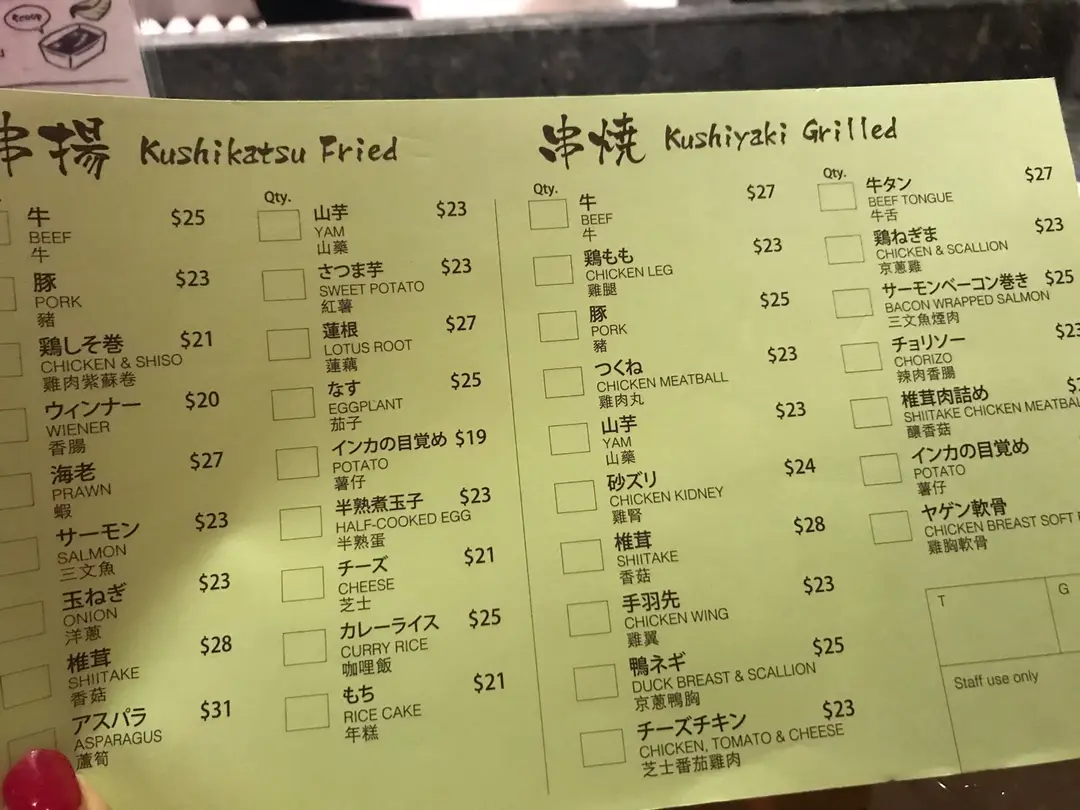 串揚 Kushikatsu Fried
牛 $25
BEEF
牛
豚 $23
PORK
豬
鶏しそ巻 $21
CHICKEN & SHISO
雞肉紫蘇卷
ウィンナー $20
WIENER
香腸
海老 $27
PRAWN
蝦
サーモン $23
SALMON
三文魚
玉ねぎ $23
ONION
洋蔥
椎茸 $28
SHIITAKE
香菇
アスパラ $31
ASPARAGUS
蘆筍
Qty.
山芋 $23
YAM
山藥
さつま芋 $23
SWEET POTATO
紅薯
蓮根 $27
LOTUS ROOT
蓮藕
なす $25
EGGPLANT
茄子
インカの目覚め $19
POTATO
薯仔
半熟煮玉子 $23
HALF-COOKED EGG
半熟蛋
チーズ $21
CHEESE
芝士
カレーライス $25
CURRY RICE
咖哩飯
もち $21
RICE CAKE
年糕
串焼 Kushiyaki Grilled
Qty.
牛 $27
BEEF
牛
鶏もも $23
CHICKEN LEG
雞腿
豚 $25
PORK
豬
つくね $23
CHICKEN MEATBALL
雞肉丸
山芋 $23
YAM
山藥
砂ズリ $24
CHICKEN KIDNEY
雞腎
椎茸 $28
SHIITAKE
香菇
手羽先 $23
CHICKEN WING
雞翼
鴨ネギ $25
DUCK BREAST & SCALLION
京蔥鴨胸
チーズチキン $23
CHICKEN, TOMATO & CHEESE
芝士番茄雞肉
Qty.
牛タン $27
BEEF TONGUE
牛舌
鶏ねぎま $23
CHICKEN & SCALLION
京蔥雞
サーモンベーコン巻き $25
BACON WRAPPED SALMON
三文魚煙肉
チョリソー $23
CHORIZO
辣肉香腸
椎茸肉詰め
SHIITAKE CHICKEN MEATBAL
釀香菇
インカの目覚め
POTATO
薯仔
ヤゲン軟骨
CHICKEN BREAST SOFT
雞胸軟骨
T
G
Staff use only